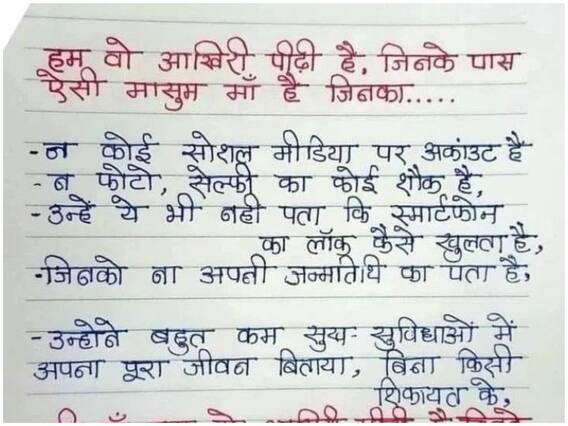 हम वो आखिरी पीढ़ी है, जिनके पास
ऐसी मासुम माँ है जिनका.....
- न कोई सोशल मीडिया पर अकांउट है
- न फोटो, सेल्फी का कोई शौक है,
- उन्हें ये भी नही पता कि स्मार्टफोन
का लॉक कैसे खुलता है,
- जिनको ना अपनी जन्मतिथि का पता है,
- उन्होने बहुत कम सुख- सुविधाओं में
अपना पूरा जीवन बिताया, बिना किसी
शिकायत के,